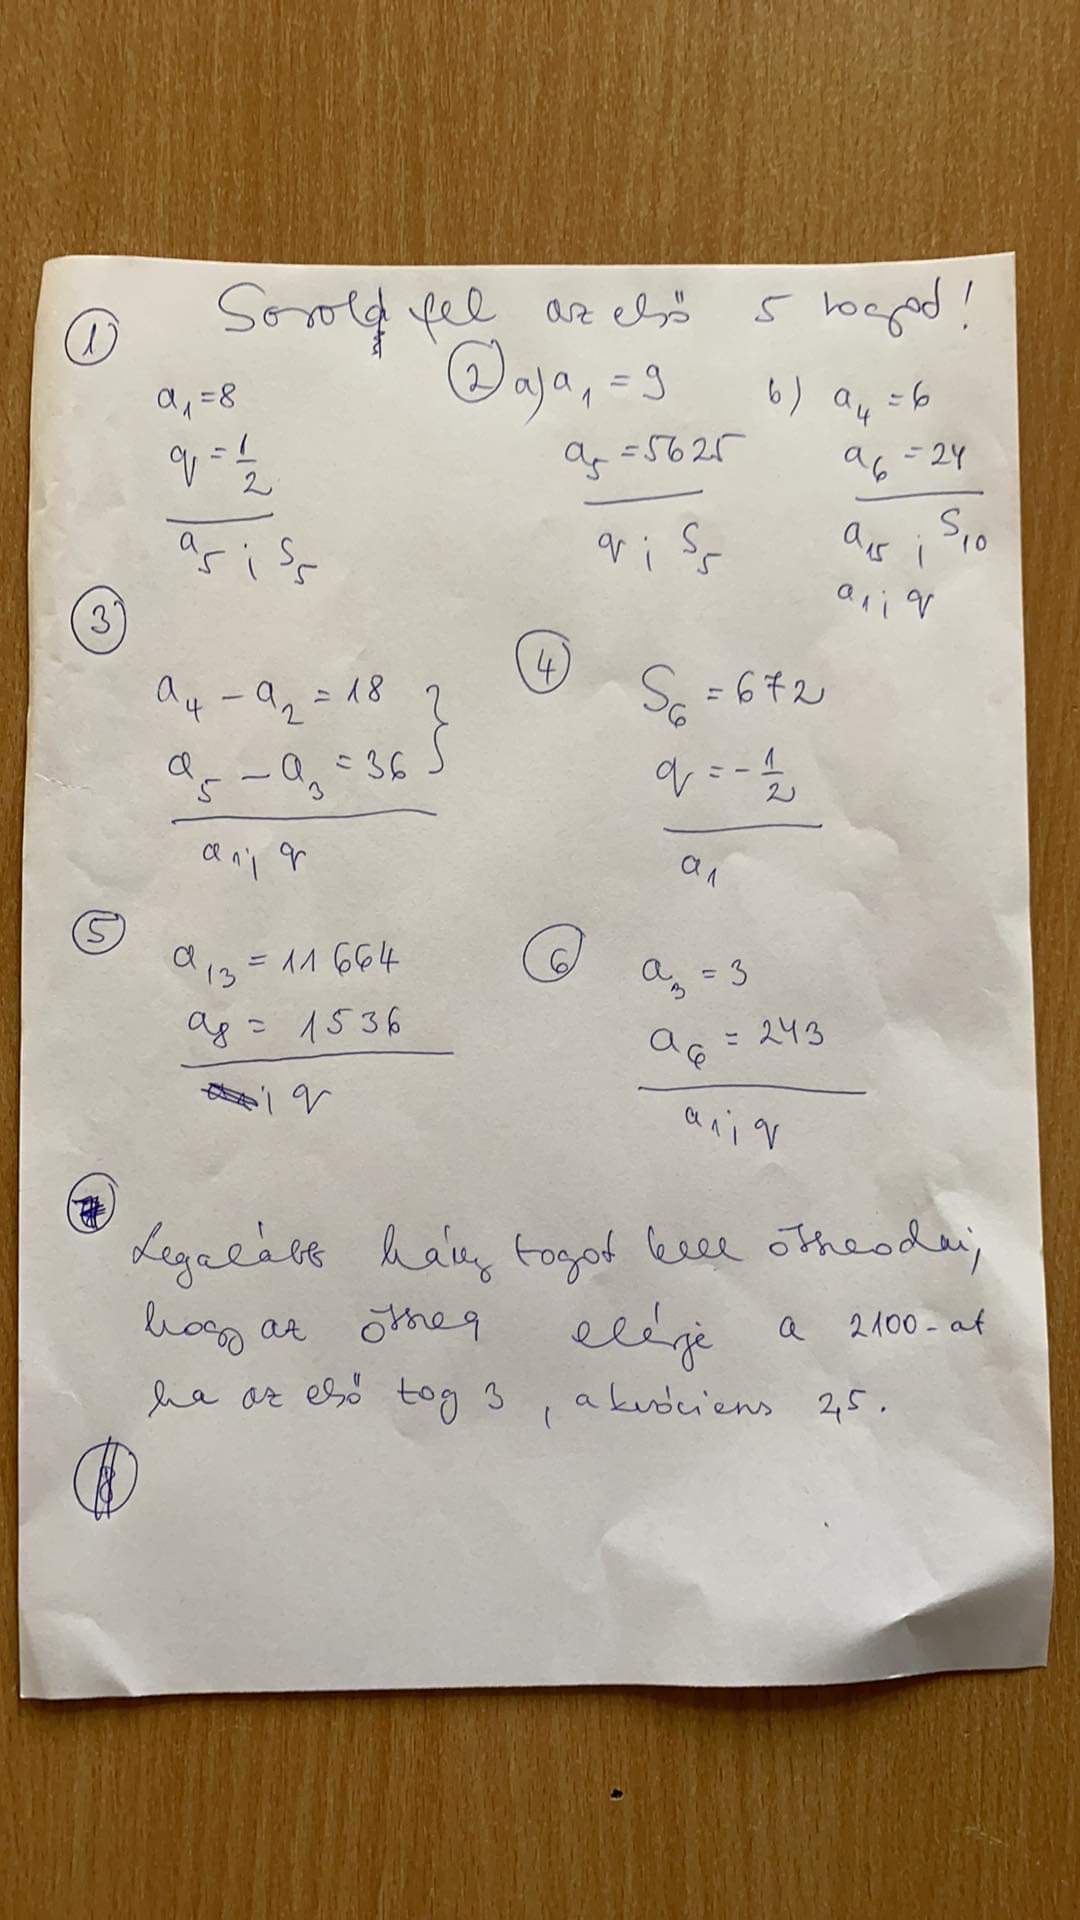 Sorold fel az első 5 tagod!
① a₁=8
q=1/2
a₅ ; S₅
② a) a₁ = 9
a₅ = 5625
q ; S₅
b) a₄ = 6
a₆ = 24
a₁₅ ; S₁₀
a₁ ; q
③ a₄ - a₂ = 18 }
a₅ - a₃ = 36
a₁ ; q
④ S₆ = 672
q = -1/2
a₁
⑤ a₁₃ = 11664
a₈ = 1536
; q
⑥ a₃ = 3
a₆ = 243
a₁ ; q
⑦
Legalább hány tagot kell összeadni,
hogy az összeg elérje a 2100-at
ha az első tag 3, a kvóciens 2,5.
⑧